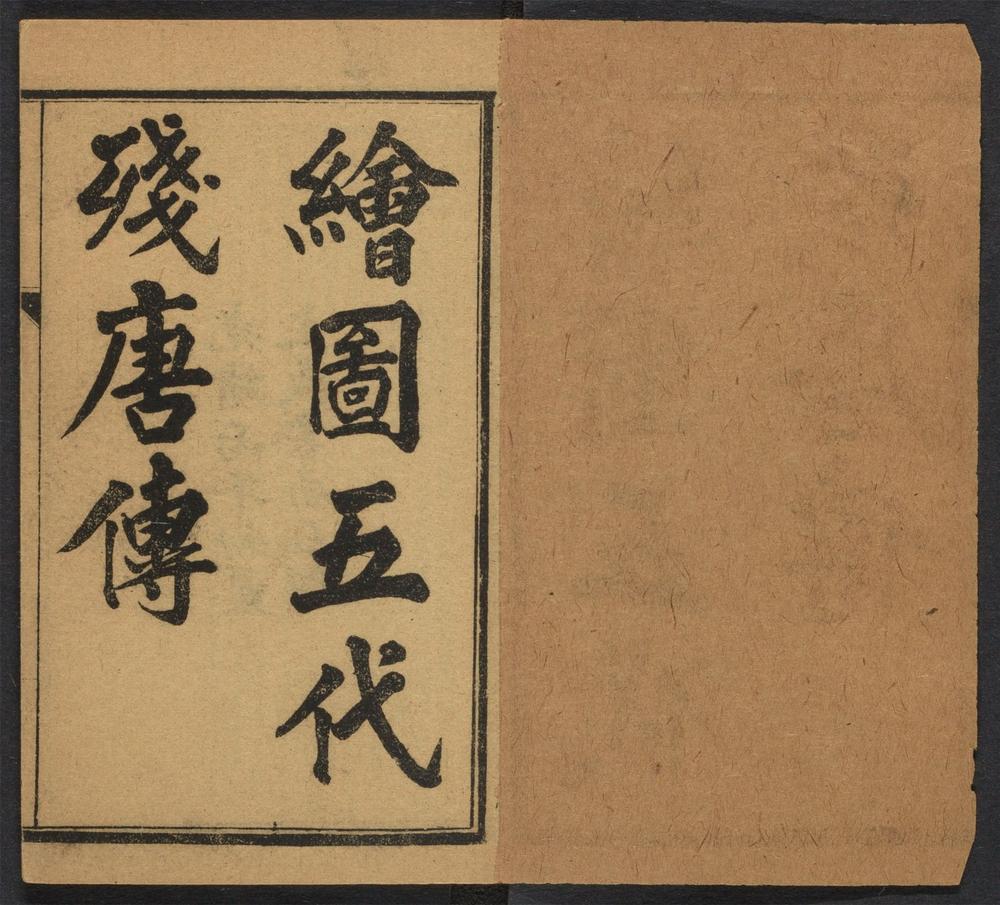 繪圖五代
殘唐傳